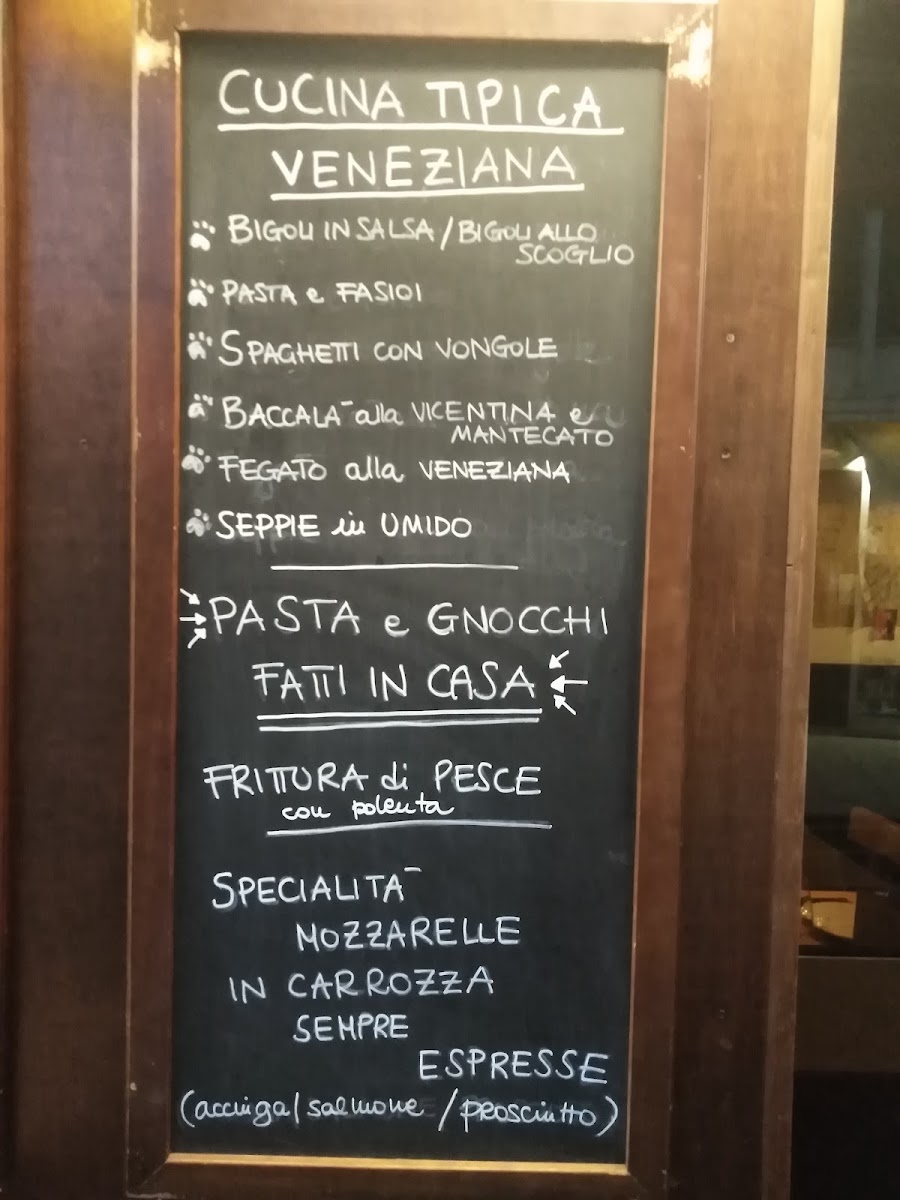 CUCINA TIPICA
VENEZIANA
BIGOLI IN SALSA / BIGOLI ALLO
SCOGLIO
PASTA e FASIOI
SPAGHETTI CON VONGOLE
BACCALÀ alla VICENTINA e
MANTECATO
FEGATO alla VENEZIANA
SEPPIE in UMIDO
PASTA e GNOCCHI
FATTI IN CASA
FRITTURA di PESCE
con polenta
SPECIALITÀ
MOZZARELLE
IN CARROZZA
SEMPRE
ESPRESSE
(acciuga / salmone / prosciutto)